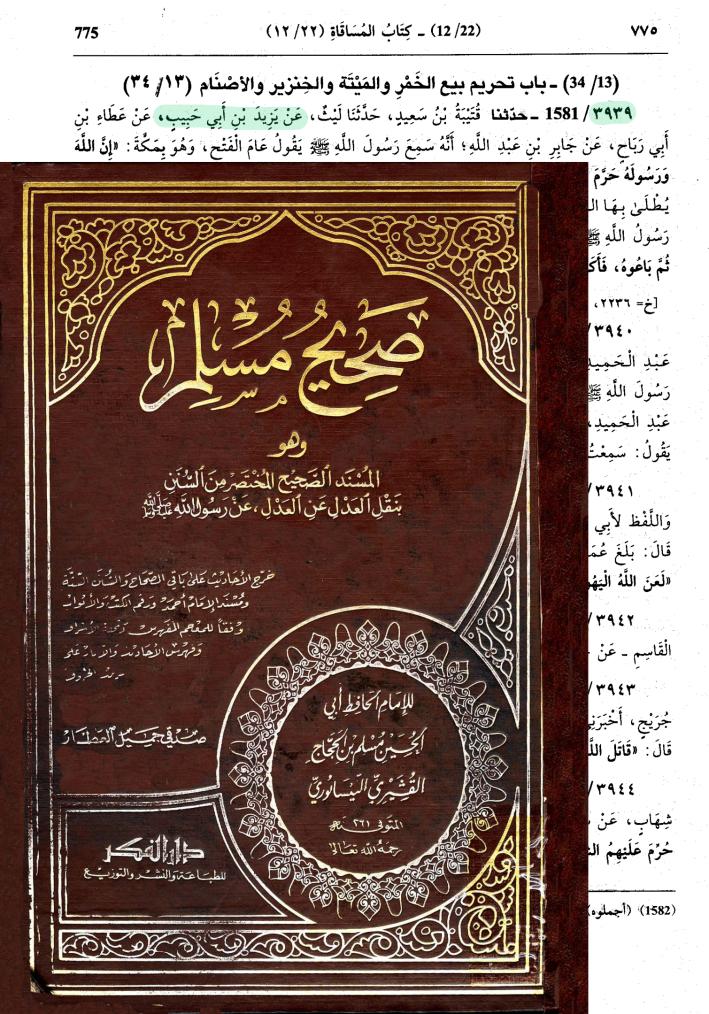 775 (12/22) ـ كِتَابُ المُسَاقَاةِ (١٢/٢٢) ٧٧٥
(34/13) ـ باب تحريم بيع الخَمْرِ والمَيْتَة والخِنزير والأصْنَام (٣٤/١٣)
٣٩٣٩/ 1581 ـ حدّثنا قُتَيْبَةُ بْنُ سَعِيدٍ، حَدَّثَنَا لَيْثٌ، عَنْ يَزِيدَ بْنِ أَبِي حَبِيبٍ، عَنْ عَطَاءِ بْنِ
أَبِي رَبَاحٍ، عَنْ جَابِرِ بْنِ عَبْدِ اللَّهِ؛ أَنَّهُ سَمِعَ رَسُولَ اللَّهِ ﷺ يَقُولُ عَامَ الْفَتْحِ، وَهُوَ بِمَكَّةَ: «إِنَّ اللَّهَ
وَرَسُولَهُ حَرَّمَ
يُطْلَىٰ بِهَا
رَسُولُ اللَّهِ ﷺ
ثُمَّ بَاعُوهُ،
[خ= ٢٢٣٦،
٣٩٤٠/
عَبْدِ الْحَمِيدِ
رَسُولَ اللَّهِ ﷺ
عَبْدِ الْحَمِيدِ،
يَقُولُ: سَمِعْتُ
٣٩٤١/
وَاللَّفْظ لأَبِي
قَالَ: بَلَغَ
«لَعَنَ اللَّهُ
٣٩٤٢/
الْقَاسِمِ ـ عَنْ
٣٩٤٣/
جُرَيْجٍ،
قَالَ: «قَاتَلَ
٣٩٤٤/
شِهَابٍ، عَنْ
حُرِّمَ عَلَيْهِمُ
(1582) (أجملوه)
صَحِيحُ مُسْلِم
وهو
المُسْنَد الصَّحِيحُ المُخْتَصَر مِنَ السُّنَنِ
بنَقْلِ العَدْلِ عَنِ العَدْلِ، عَنْ رَسُولِ اللَّه ﷺ
خرج الأحاديث على باقي الصحاح والسنن الستة
ومسند الإمام أحمد ورقم الكتب والأبواب
وفقاً للمعجم المفهرس وتحفة الأشراف
صدقي جميل العطار
للإمام الحافظ أبي
الحسين مسلم بن الحجاج
القشيري النيسابوري
المتوفى ٢٦١ هـ
رحمه الله تعالى
دار الفكر
للطباعة والنشر والتوزيع